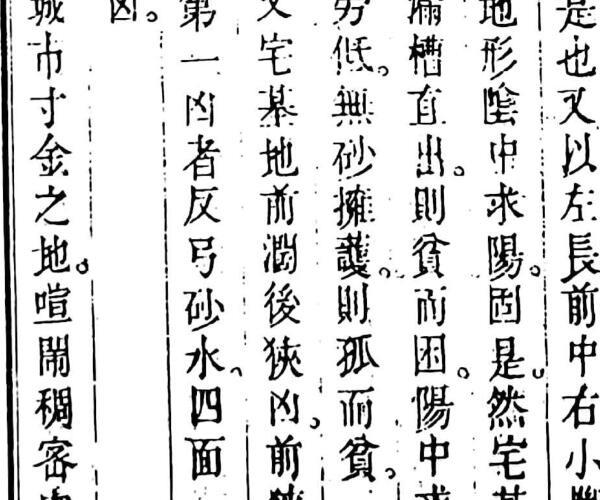 是也又以左長前中右小
地形陰中求陽。固是。然宅基
漏槽直出。則貧而困。陽中求
穷低。無砂擁護。則孤而貧。
又宅基地前濶後狹凶。前狹
第一凶者反弓砂水。四面
凶。
城市寸金之地。喧鬧稠密